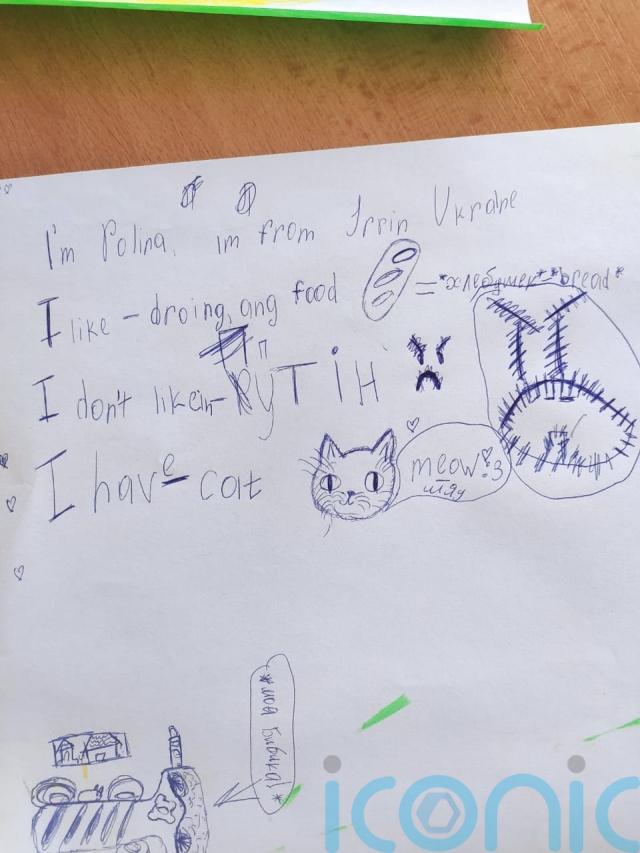 I'm Polina, im from Irrin Ukraine
I like - droing, ang food = *хлебушек* *bread*
I don't like - Путін
I have cat
meow :3
мяу
iconic